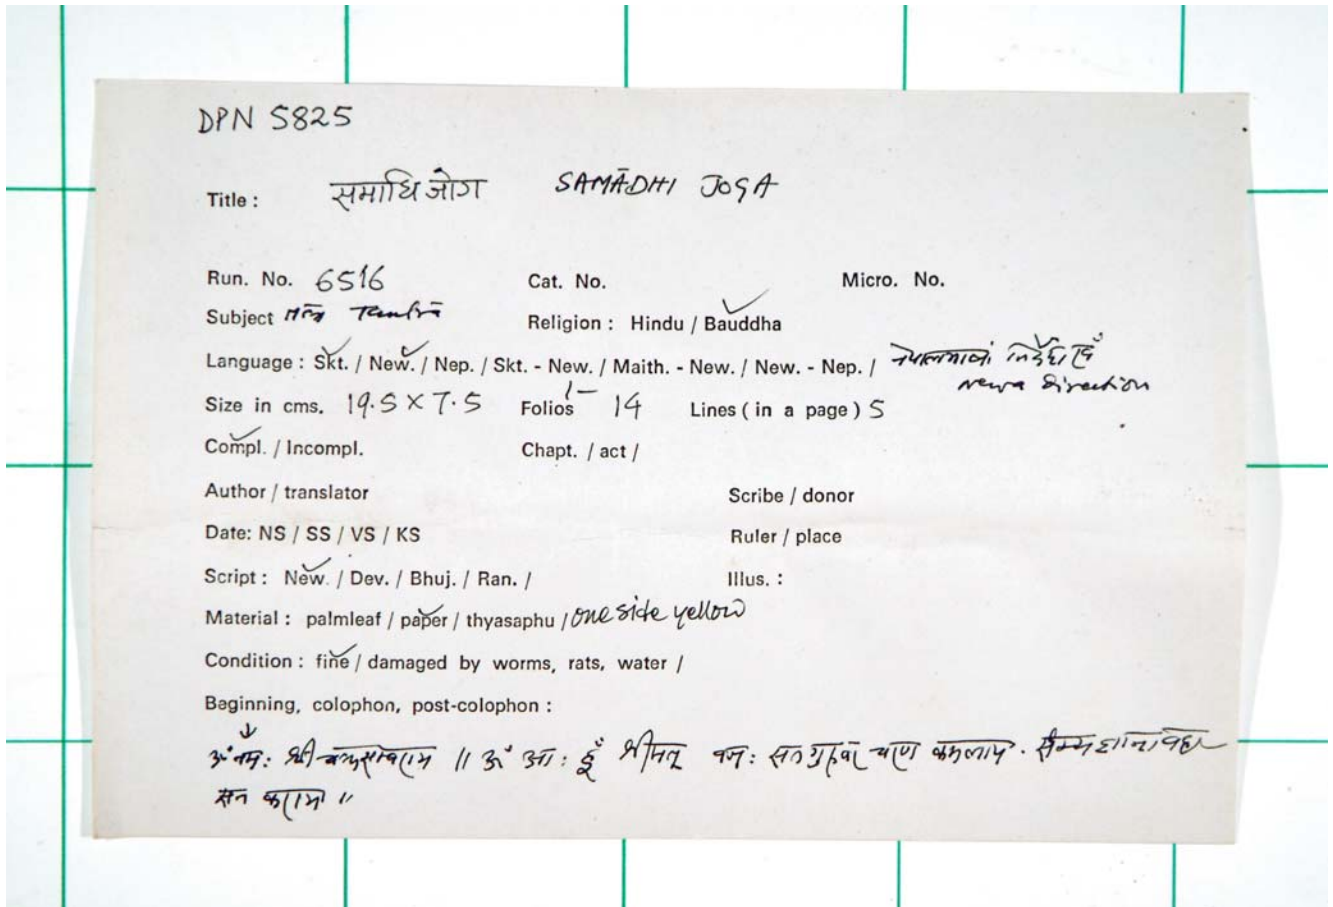 DPN 5825
Title : समाधि जोग SAMĀDHI JOGA
Run. No. 6516 Cat. No. Micro. No.
Subject Tantra Religion : Hindu / Bauddha
Language : Skt. / New. / Nep. / Skt. - New. / Maith. - New. / New. - Nep. /
Newa Direction
Size in cms. 19.5 X 7.5 Folios 14 Lines ( in a page ) 5
Compl. / Incompl. Chapt. / act /
Author / translator Scribe / donor
Date: NS / SS / VS / KS Ruler / place
Script : New. / Dev. / Bhuj. / Ran. / Illus. :
Material : palmleaf / paper / thyasaphu / one side yellow
Condition : fine / damaged by worms, rats, water /
Beginning, colophon, post-colophon :
ॐ नमः श्री ॥ ॐ आः हूँ श्रीमत्